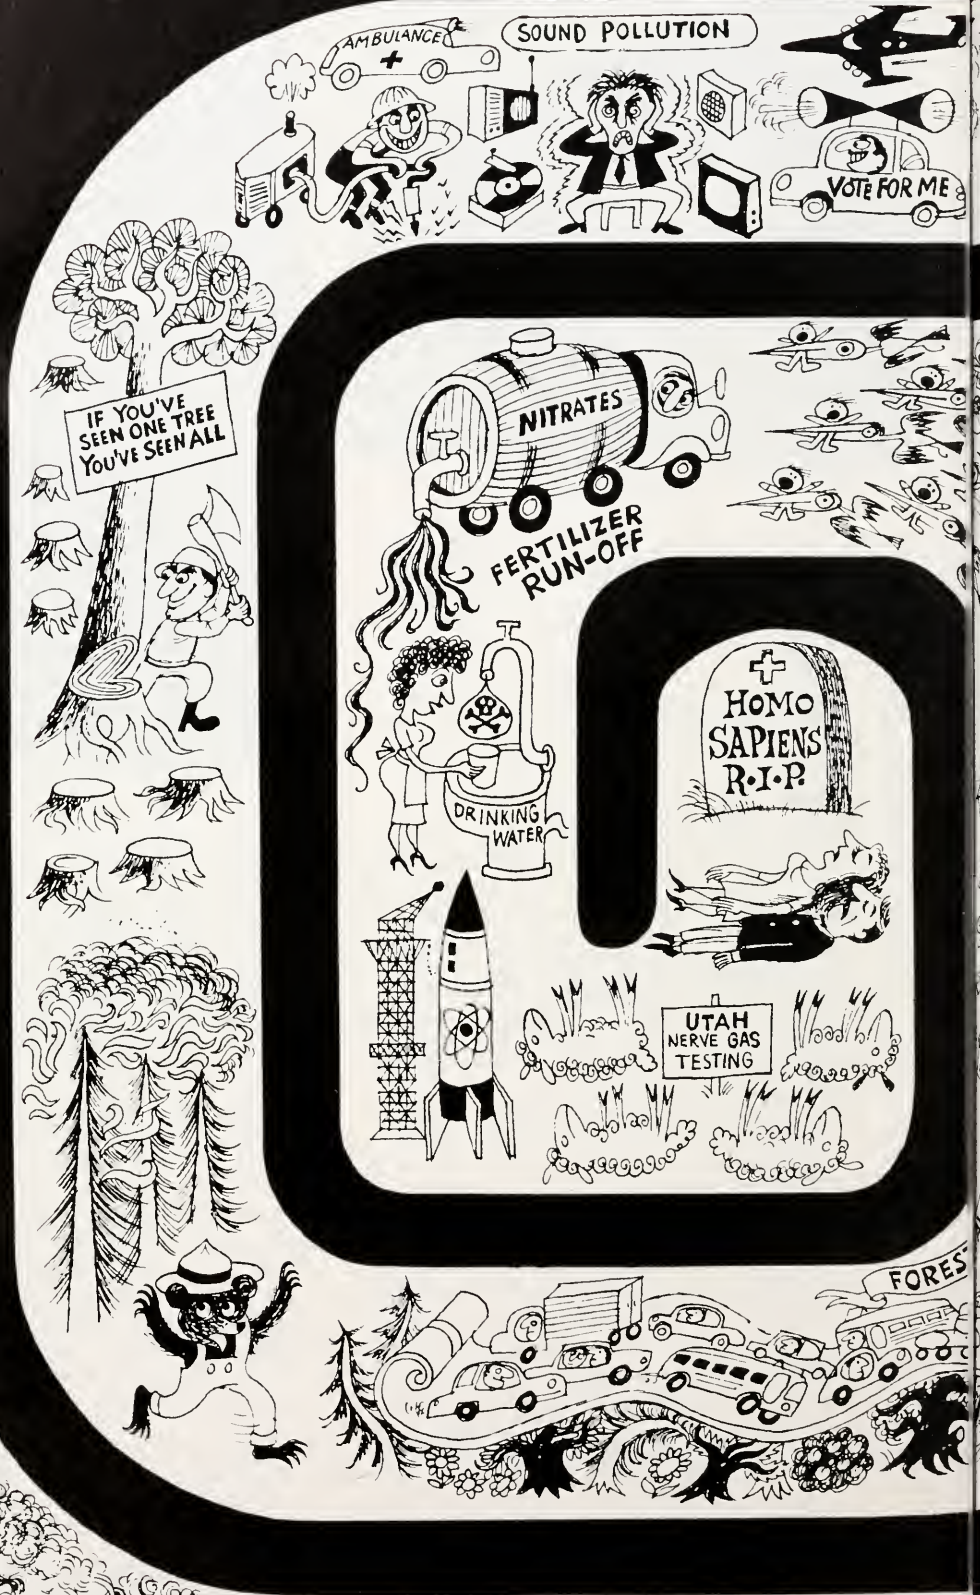 AMBULANCE
SOUND POLLUTION
VOTE FOR ME
IF YOU'VE
SEEN ONE TREE
YOU'VE SEEN ALL
NITRATES
FERTILIZER
RUN-OFF
DRINKING
WATER
HOMO
SAPIENS
R.I.P.
UTAH
NERVE GAS
TESTING
FORES